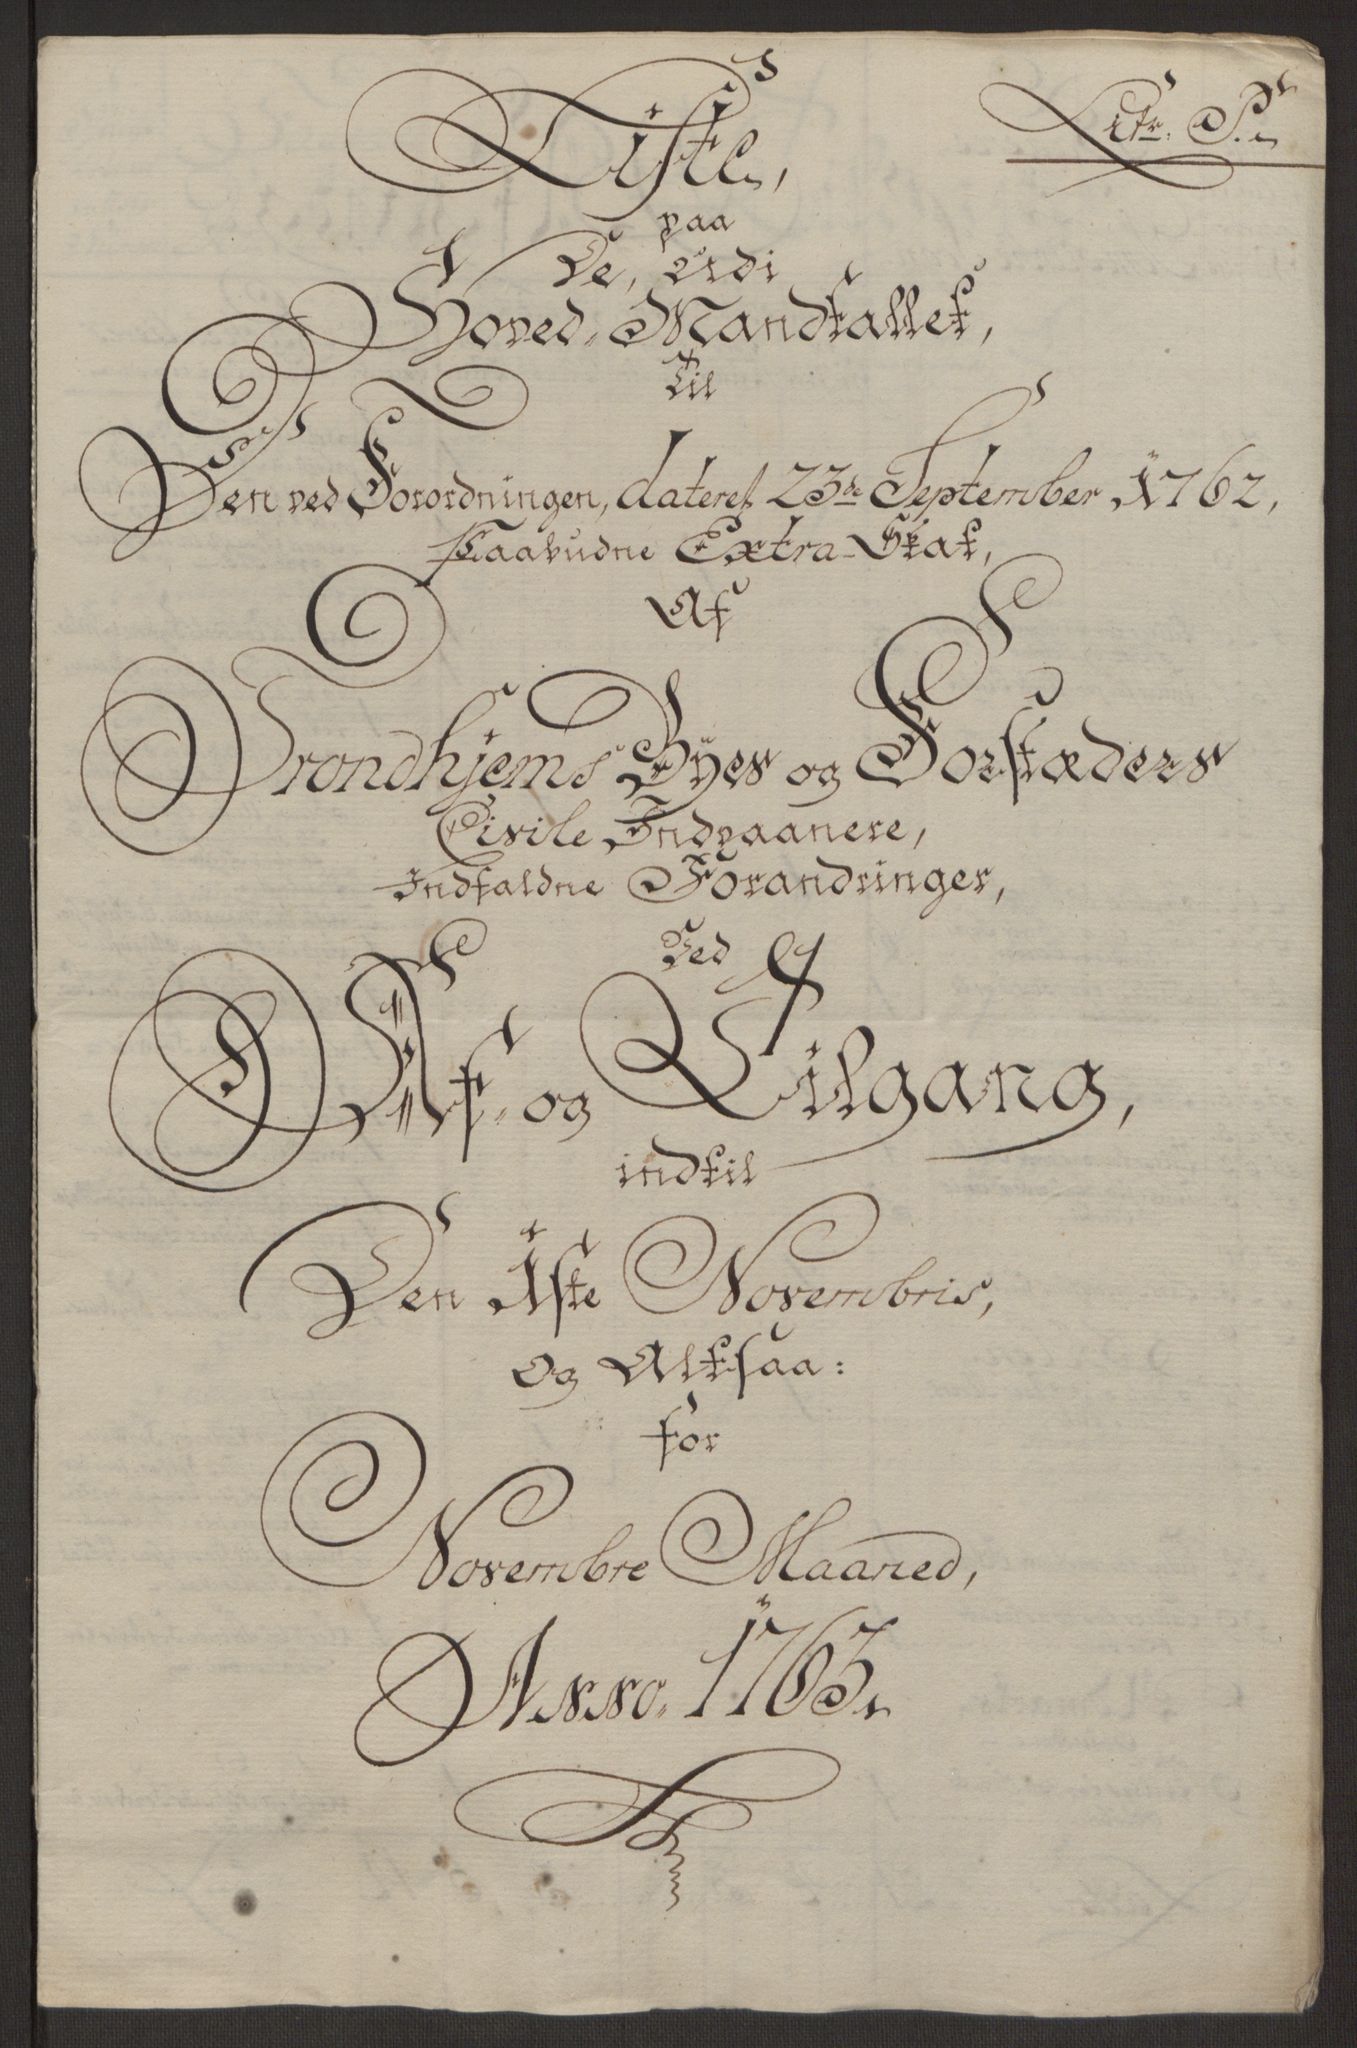 Litr. S.
Liste,
paa
De, udi
Hoved-Mandtallet,
Til
Den ved Forordningen, dateret 23de September 1762,
Paabudne Extra-Skat,
Af
Trondhjems Byes og Forstæders
Civile Indvaanere,
Indfaldne Forandringer,
Ved
Af- og Tilgang,
indtil
Den 1ste Novembris,
Og Altsaa:
for
Novembre Maaned,
Anno. 1763.